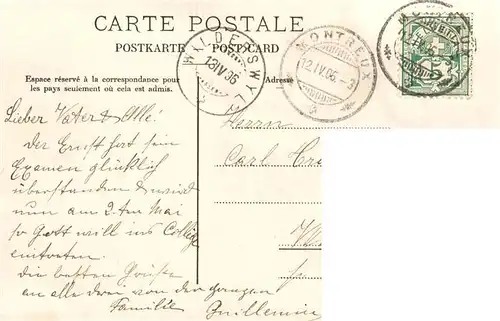 CARTE POSTALE
POSTKARTE POST CARD
Espace réservé à la correspondance pour
les pays seulement où cela est admis.
Adresse
WILDERSWYL
13 IV 06
MONTREUX
12 IV 06-3
Lieber Vater & Alle!
Der Ernst hat sein
Examen glücklich
überstanden & wird
nun am 2. ten Mai
so Gott will ins College
eintreten.
Die besten Grüsse
an alle drei von der ganzen
Familie Guillemin
Herrn
Carl